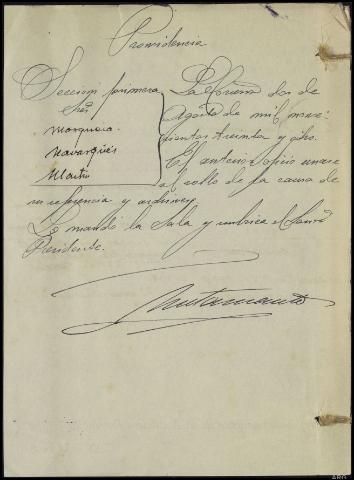 Providencia
Sección primera
Sres
Marquera
Navarqués
Martín
La Coruña dos de
Agosto de mil nove-
cientos treinta y ocho.
El anterior oficio unase
al rollo de la causa de
su referencia y
Lo mandó la Sala y rubrica el Señor
Presidente.